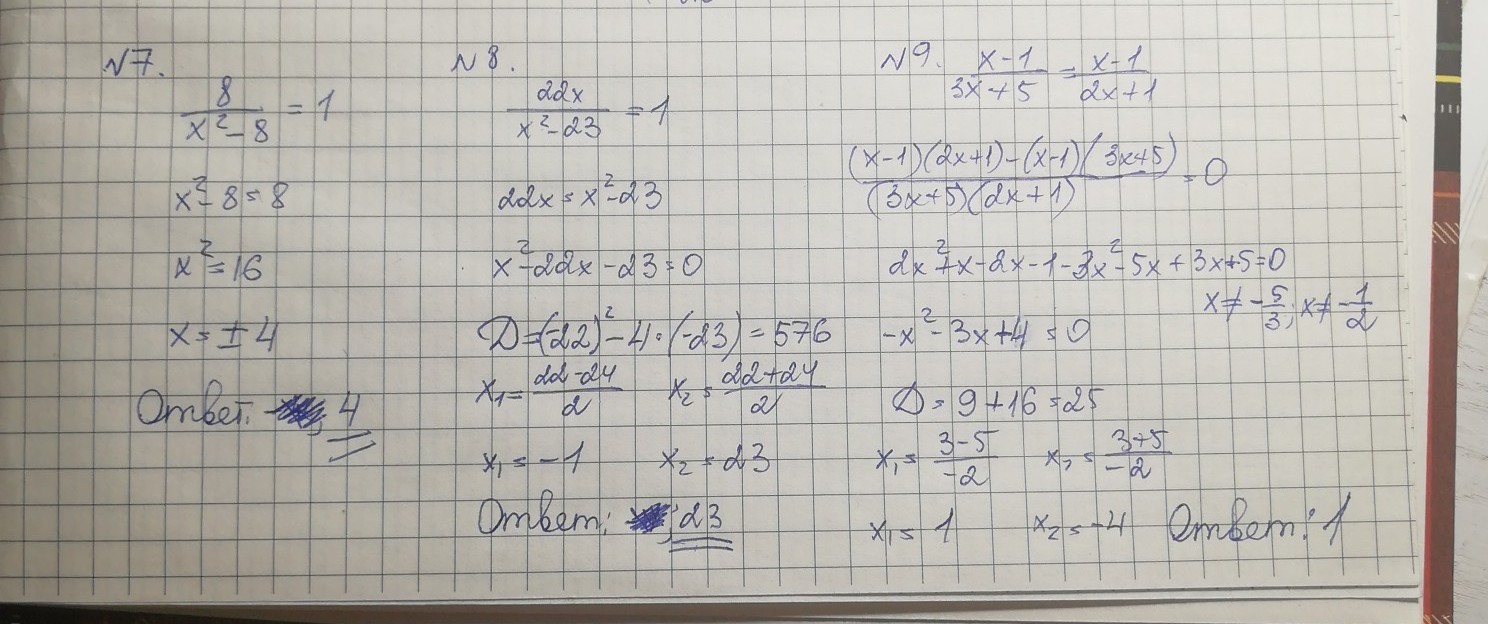 №7.
8/(x²-8) = 1
x²-8=8
x²=16
x=±4
Ответ: 4
№8.
22x/(x²-23) = 1
22x=x²-23
x²-22x-23=0
D=(-22)²-4·(-23)=576
x₁=(22-24)/2 x₂=(22+24)/2
x₁=-1 x₂=23
Ответ: 23
№9. (x-1)/(3x+5) = (x-1)/(2x+1)
((x-1)(2x+1)-(x-1)(3x+5))/((3x+5)(2x+1)) = 0
2x²+x-2x-1-3x²-5x+3x+5=0
x≠-5/3; x≠-1/2
-x²-3x+4=0
D=9+16=25
x₁=(3-5)/-2 x₂=(3+5)/-2
x₁=1 x₂=-4 Ответ: 1